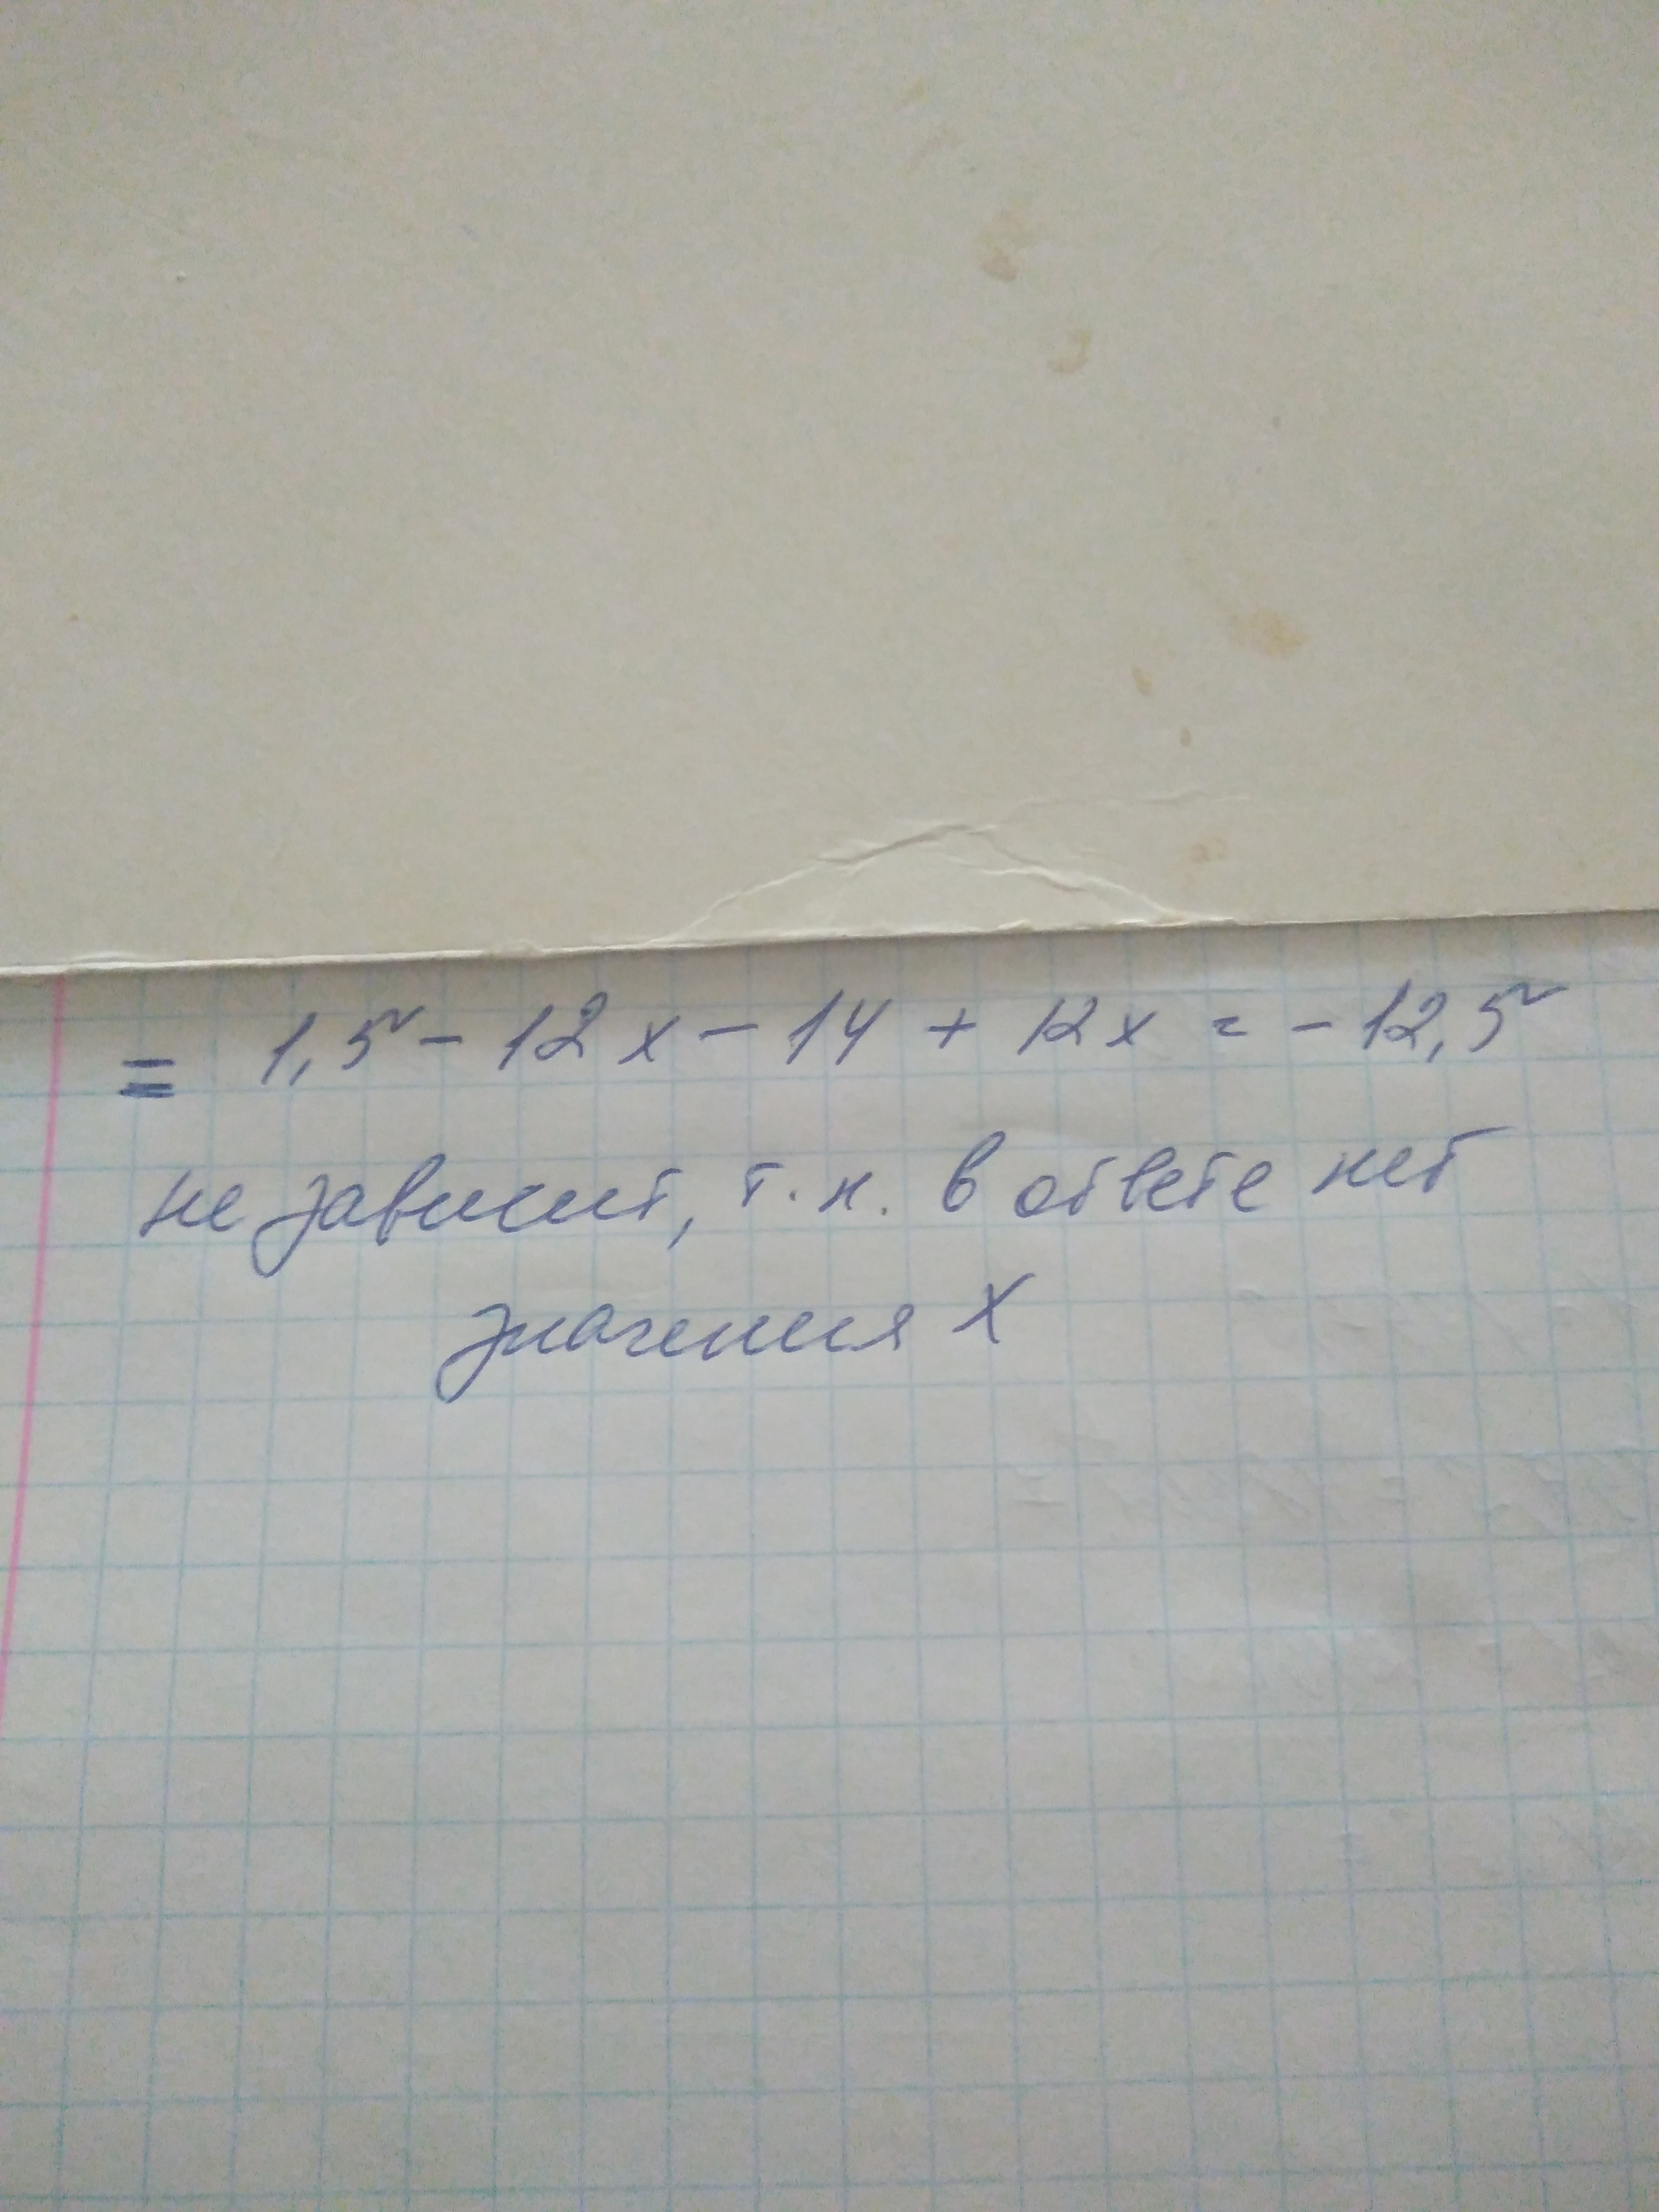 = 1,5 - 12x - 14 + 12x = - 12,5
не зависит, т.к. в ответе нет
значения x